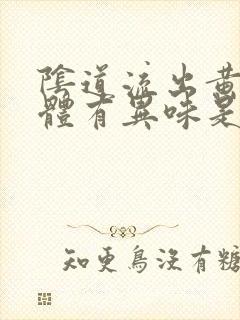 陰道流出黃
體有異味是
知更鳥沒有糖